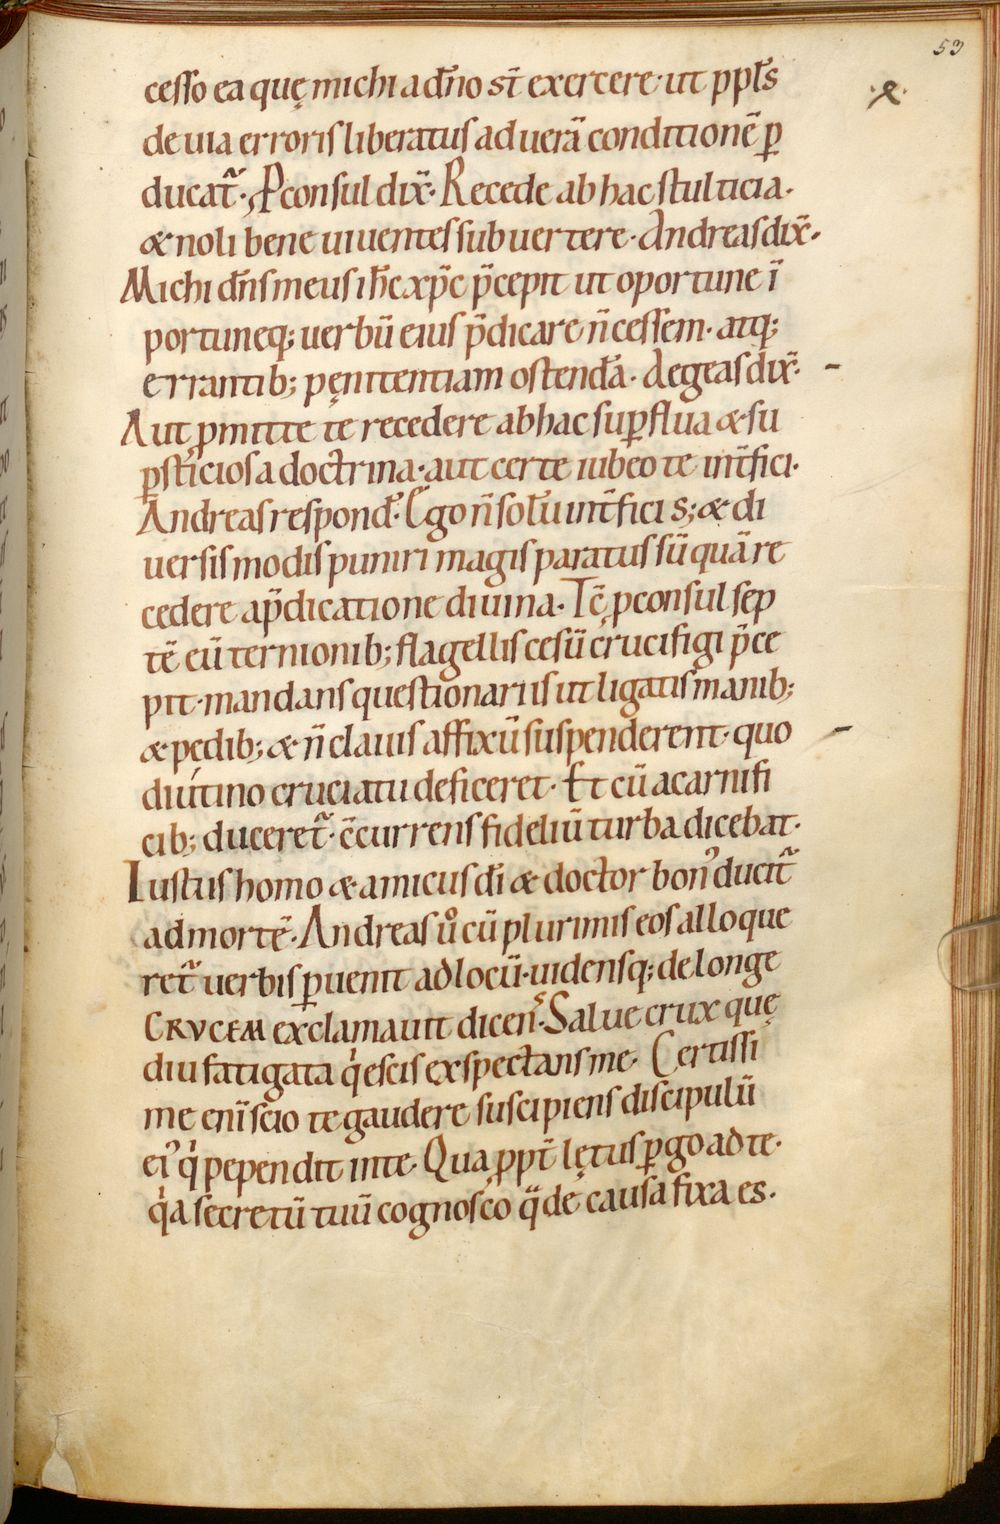 53
cesso ea quę michi a dn̄o st̄ exercere· ut ppl̄s
de uia erroris liberatus ad uerā conditionē ꝑ
ducat᷑· Ꝓconsul dix̄· Recede ab hac stulticia·
& noli bene uiuentes subuertere· Andreas dix̄·
Michi dn̄s meus ih̄c xp̄c p̄cepit ut oportune ī
portuneq; uerbū eius p̄dicare n̄ cessem· atq;
errantib; pęnitentiam ostendā· Aegeas dix̄·
Aut ꝑmitte te recedere ab hac suꝑflua & su
ꝑsticiosa doctrina· aut certe iubeo te int̄fici·
Andreas respond̄· Ego n̄ solū int̄ficis; & di
uersis modis puniri magis paratus sū quā re
cedere a p̄dicatione diuina· Tc̄ ꝓconsul sep
tē eū ternionib; flagellis cesū crucifigi p̄ce
pit· mandans questionariis ut ligatis manib;
& pedib; & n̄ clauis affixū suspenderent· quo
diutino cruciatu deficeret· Et cū a carnifi
cib; duceret᷑· c̄currens fideliū turba dicebat·
Iustus homo & amicus dī & doctor bonꝰ ducit᷑
ad mortē· Andreas uͦ cū plurimis eos alloque
ret᷑ uerbis ꝑuenit ad locū· uidensq; de longe
CRVCEM exclamauit dicenˢ· Salue crux quę
diu fatigata qͥescis exspectans me· Certissi
me enī scio te gaudere suscipiens discipulū
eiꝰ qͥ pependit in te· Qua ꝓpt̄ lętus ꝑgo ad te·
qͥa secretū tuū cognosco qͣ de causa fixa es·